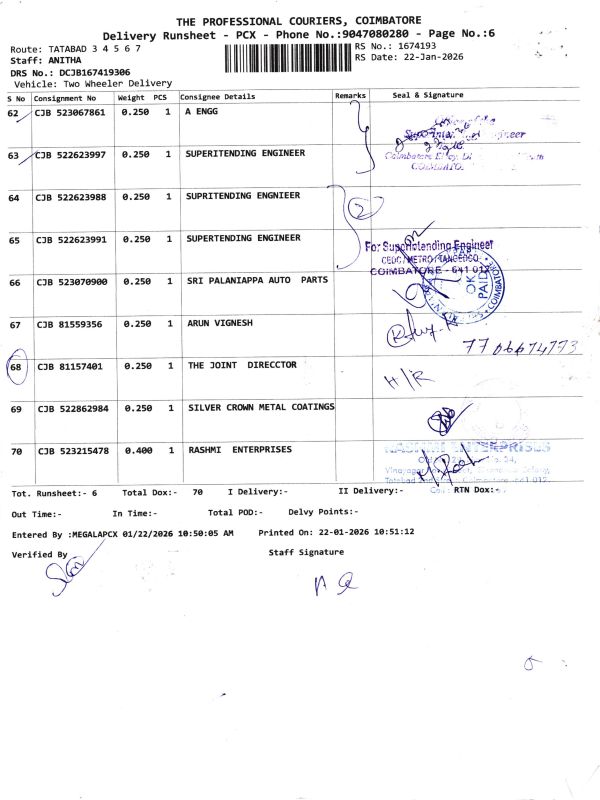 THE PROFESSIONAL COURIERS, COIMBATORE
Delivery Runsheet - PCX - Phone No.:9047080280 - Page No.:6
Route: TATABAD 3 4 5 6 7
RS No.: 1674193
Staff: ANITHA
RS Date: 22-Jan-2026
DRS No.: DCJB167419306
Vehicle: Two Wheeler Delivery
S No Consignment No Weight PCS Consignee Details Remarks Seal & Signature
62 CJB 523067861 0.250 1 A ENGG
63 CJB 522623997 0.250 1 SUPERITENDING ENGINEER
64 CJB 522623988 0.250 1 SUPRITENDING ENGNIEER
2
65 CJB 522623991 0.250 1 SUPERTENDING ENGINEER
For Superintending Engineer
CEDC/METRO/TANGEDCO
COIMBATORE - 641 012
66 CJB 523070900 0.250 1 SRI PALANIAPPA AUTO PARTS
OK
PAID
COIMBATORE
67 CJB 81559356 0.250 1 ARUN VIGNESH
68 CJB 81157401 0.250 1 THE JOINT DIRECCTOR
H/R
69 CJB 522862984 0.250 1 SILVER CROWN METAL COATINGS
70 CJB 523215478 0.400 1 RASHMI ENTERPRISES
RASHMI ENTERPRISES
Tot. Runsheet:- 6 Total Dox:- 70 I Delivery:- II Delivery:- RTN Dox:-
Out Time:- In Time:- Total POD:- Delvy Points:-
Entered By :MEGALAPCX 01/22/2026 10:50:05 AM Printed On: 22-01-2026 10:51:12
Verified By Staff Signature